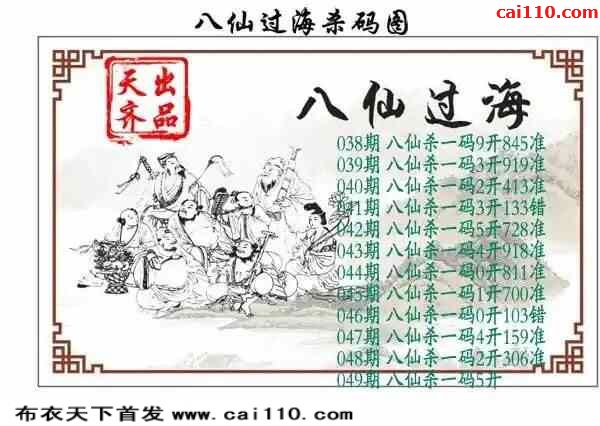 八仙过海杀码图
cai110.com
天齐
出品
八仙过海
038期 八仙杀一码9开845准
039期 八仙杀一码3开919准
040期 八仙杀一码2开413准
041期 八仙杀一码3开133错
042期 八仙杀一码5开728准
043期 八仙杀一码4开918准
044期 八仙杀一码0开811准
045期 八仙杀一码1开700准
046期 八仙杀一码0开103错
047期 八仙杀一码4开159准
048期 八仙杀一码2开306准
049期 八仙杀一码5开
布衣天下首发 www.cai110.com